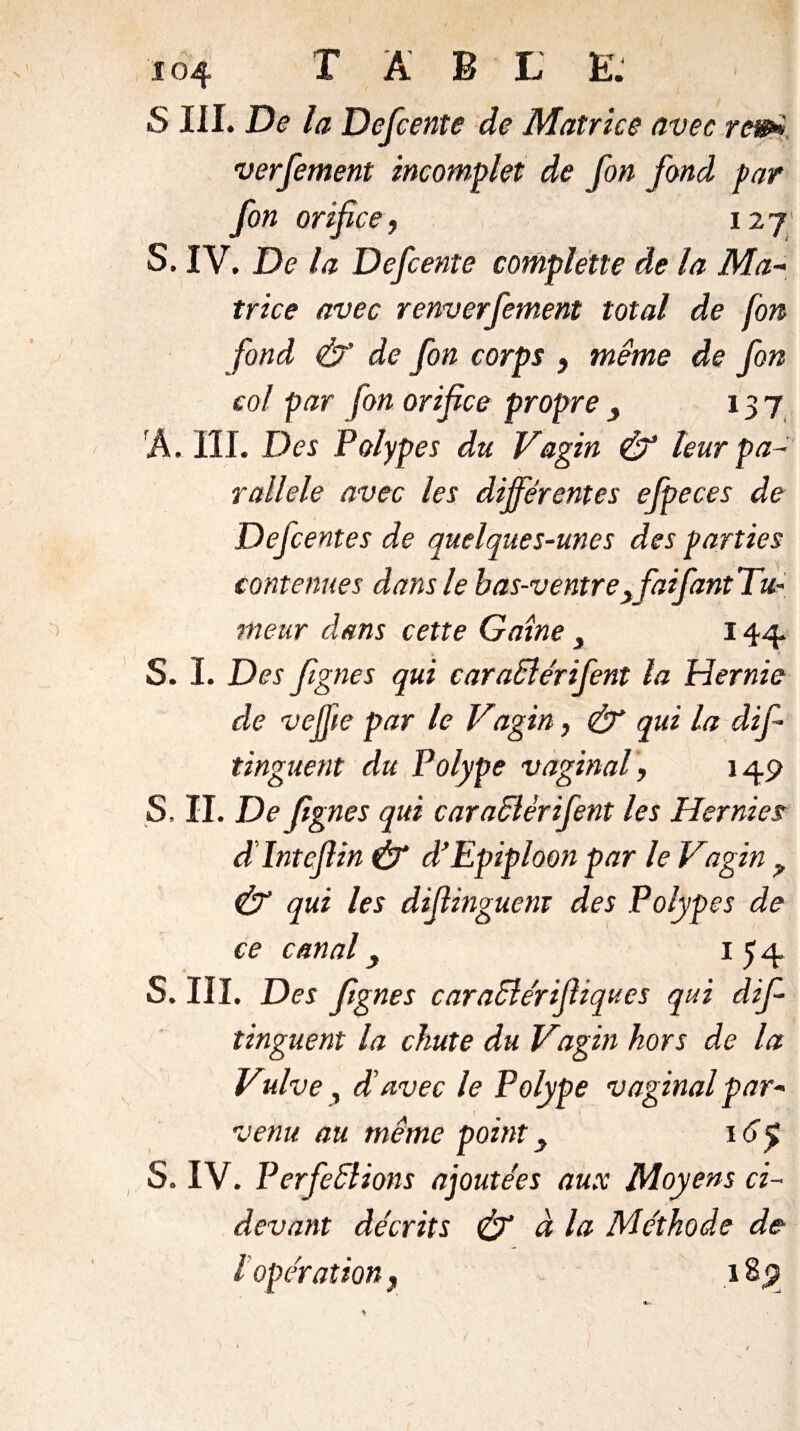 104 TABLE.
S III. De la Deſcente de Matrice avec ren-
verſement incomplet de ſon fond par
ſon orifice, 127
S. IV. De la Deſcente complette de la Ma-
trice avec renverſement total de ſon
fond & de ſon corps, même de ſon
col par ſon orifice propre, 137
A. III. Des Polypes du Vagin & leur pa-
rallele avec les différentes eſpeces de
Deſcentes de quelques-unes des parties
contenues dans le bas-ventre, faiſant Tu-
meur dans cette Gaîne, 144
S. I. Des ſignes qui caractériſent la Hernie
de veſſie par le Vagin, & qui la diſ-
tinguent du Polype vaginal, 149
S. II. De ſignes qui caractériſent les Hernies
d'Inteſtin & d'Epiploon par le Vagin,
& qui les diſtinguent des Polypes de
ce canal, 154
S. III. Des ſignes caractériſtiques qui diſ-
tinguent la chute du Vagin hors de la
Vulve, d'avec le Polype vaginal par-
venu au même point, 165
S. IV. Perfections ajoutées aux Moyens ci-
devant décrits & à la Méthode de
l'opération, 189